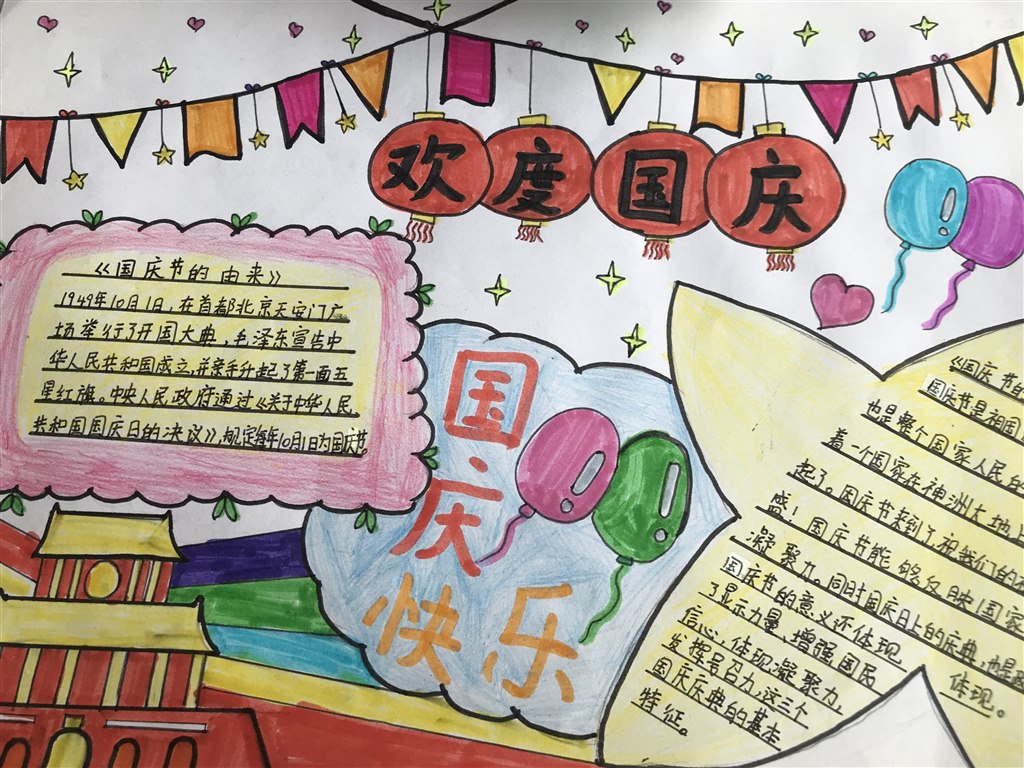 欢度国庆
《国庆节的由来》
1949年10月1日,在首都北京天安门广
场举行了开国大典,毛泽东宣告中
华人民共和国成立,并亲手升起了第一面五
星红旗。中央人民政府通过《关于中华人民
共和国国庆日的决议》,规定每年10月1日为国庆节。
国
庆
快乐
《国庆节的
国庆节是祖国
也是整个国家人民的
着一个国家在神洲大地上
起了。国庆节来到了祝我们的
盛!国庆节能够反映国家
凝聚力。同时国庆日上的庆典,也是
国庆节的意义还体现
体现。
了显示力量、增强国民
信心,体现凝聚力,
发挥号召力,这三个
国庆庆典的基本
特征。